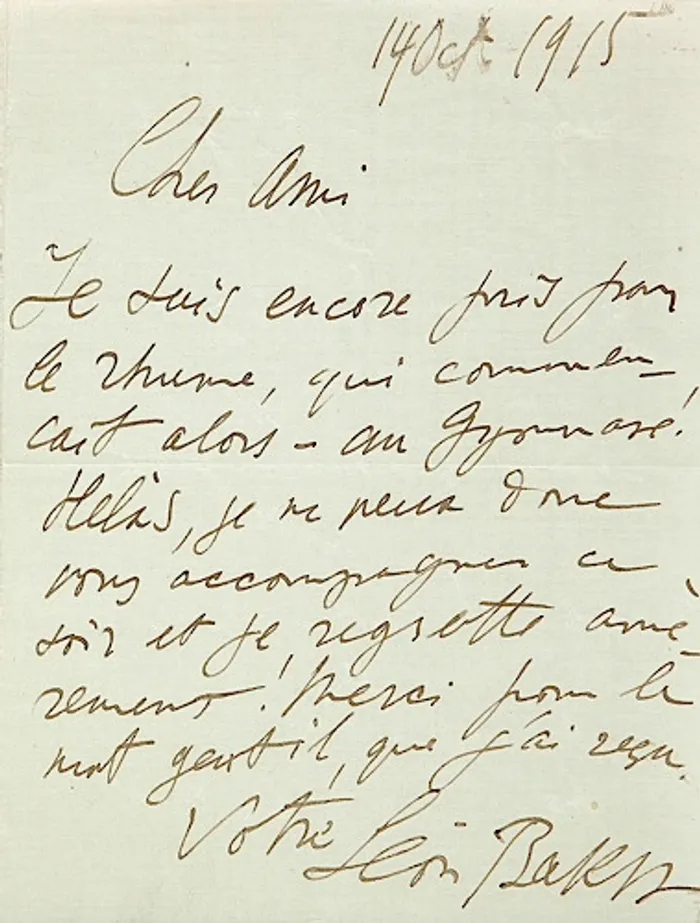 14 Oct 1915
Cher Ami
Je suis encore pris par
le rhume, qui commen-
cait alors - au Gymnase!
Hélàs, je ne peux donc
vous accompagner ce
soir et je regrette amè-
rement! Merci pour le
mot gentil, que j'ai reçu.
Votre Léon Bakst